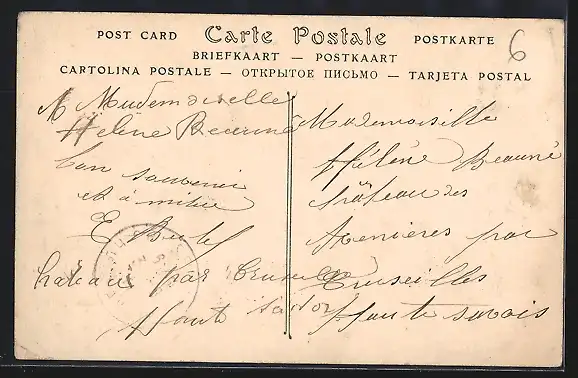 POST CARD Carte Postale POSTKARTE
BRIEFKAART — POSTKAART
CARTOLINA POSTALE — ОТКРЫТОЕ ПИСЬМО — TARJETA POSTAL
6
A Mademoiselle
Hélène
bon souvenir
et amitié
E
chateau par
Haute
Mademoiselle
Hélène Beauné
château des
Avenieres par
Cruseilles
Haute savois